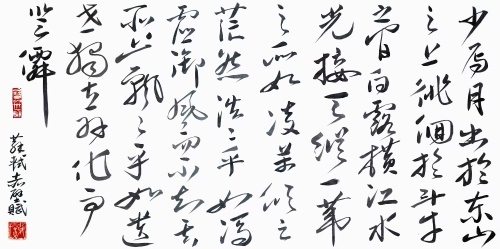 少焉月出於東山
之上徘徊於斗牛
之間白露橫江水
光接天縱一葦
之所如凌萬頃之
茫然浩〻乎如馮
虛御風而不知其
所止飄〻乎如遺
世獨立羽化而
登僊
蘇軾赤壁賦